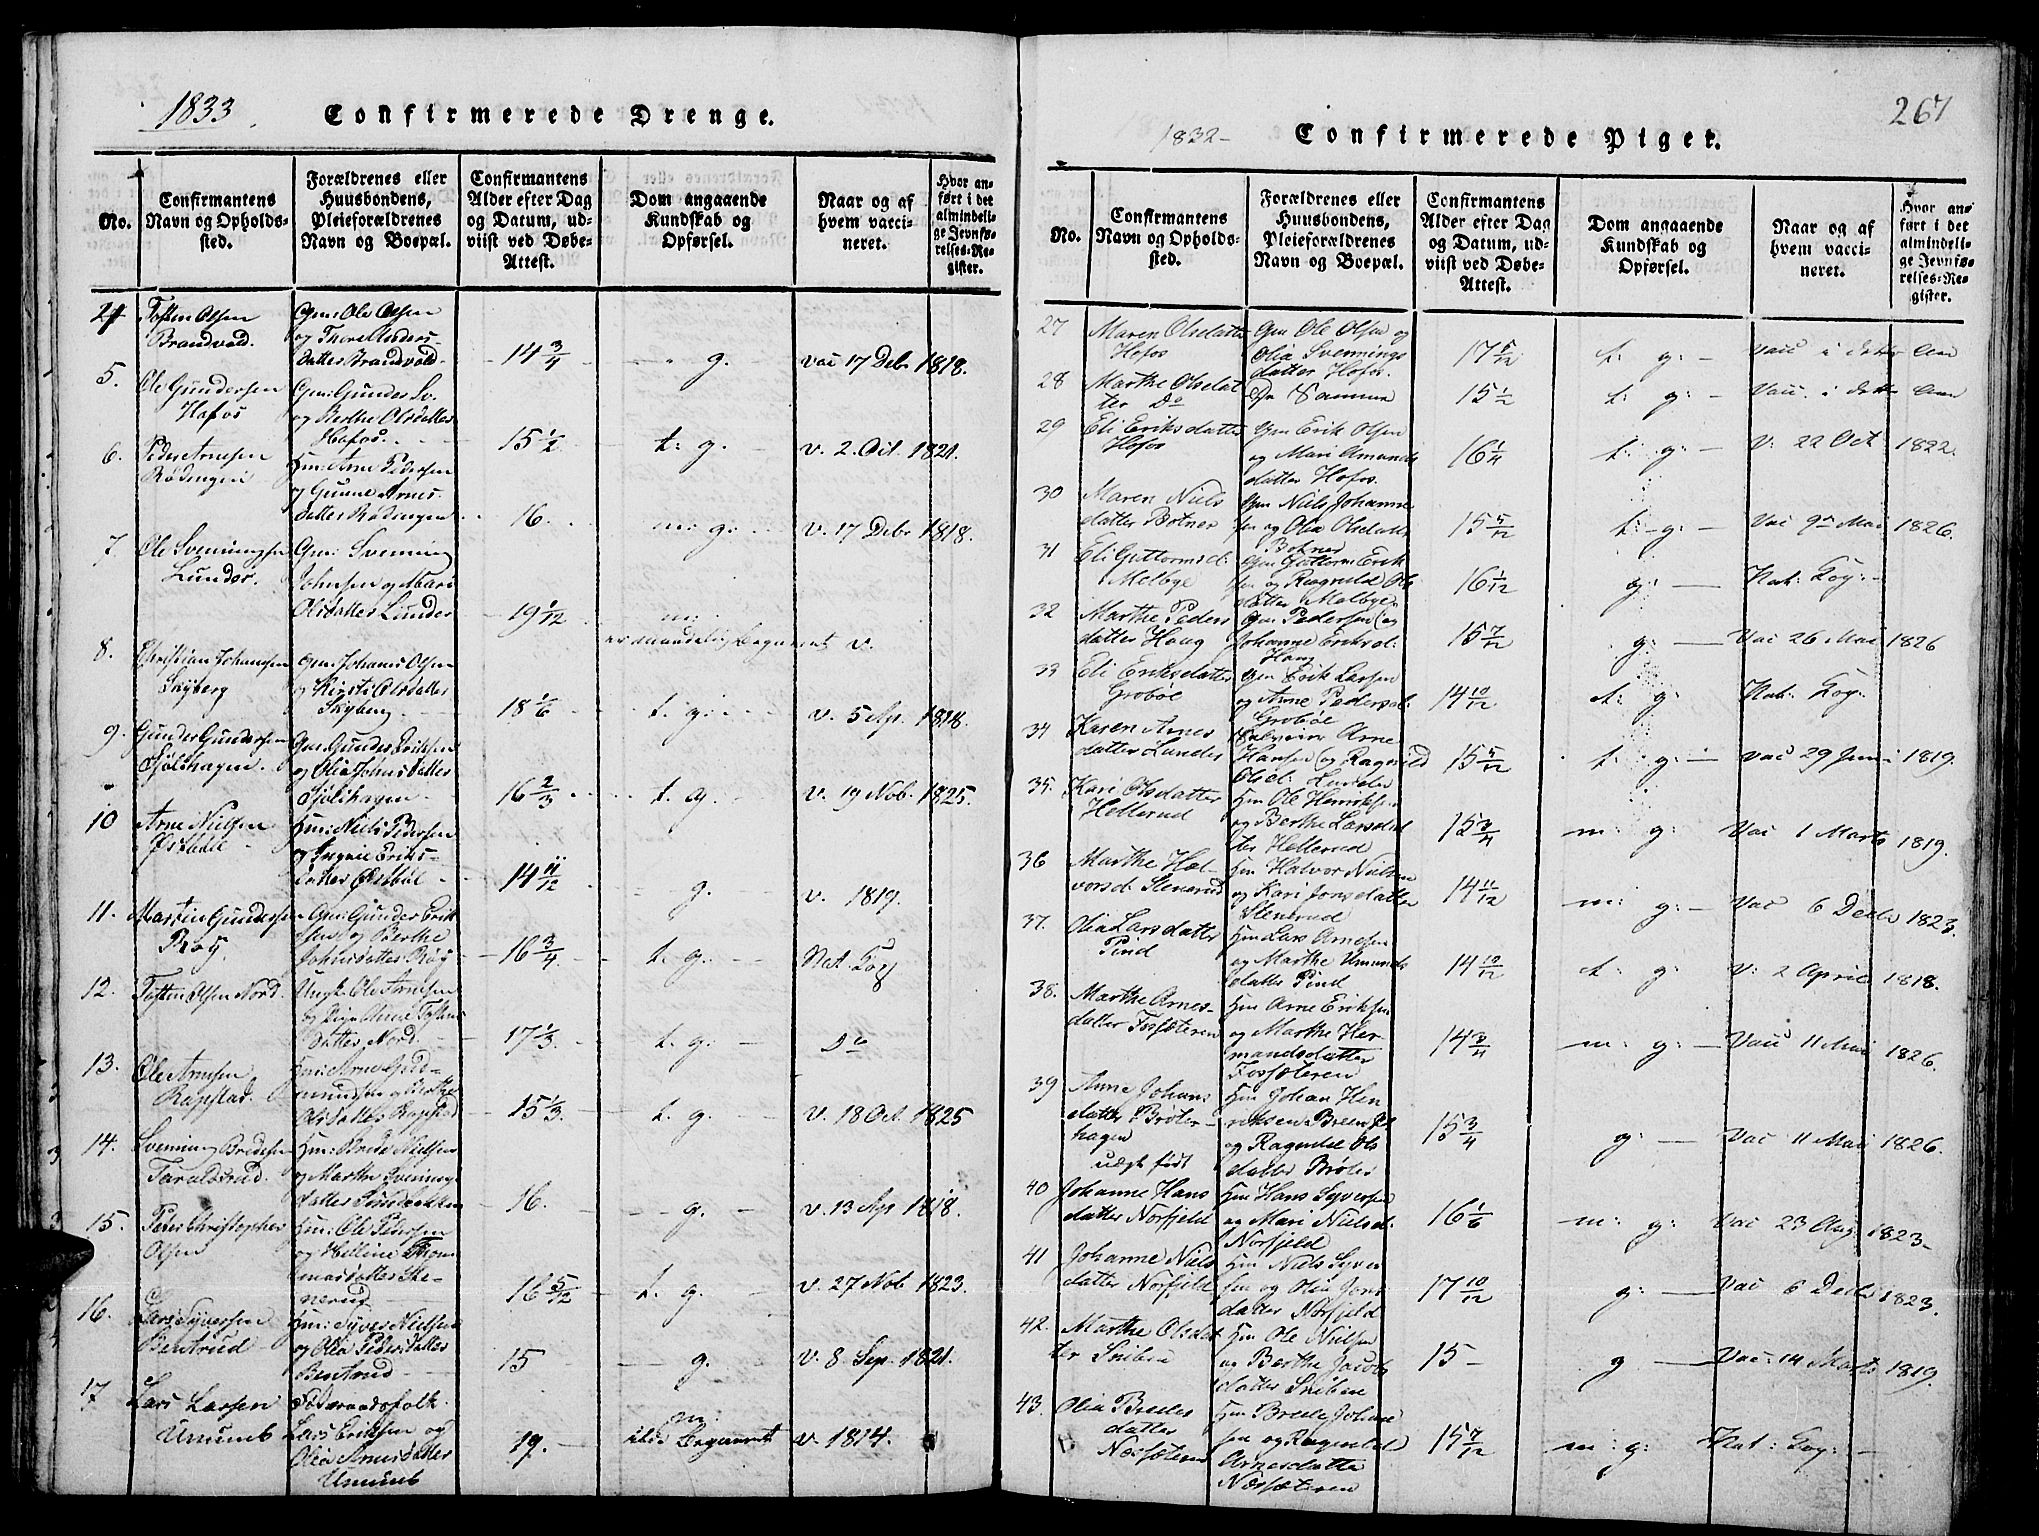 1833
Confirmerede Drenge.
No.
Confirmantens
Navn og Opholds-
sted.
Forældrenes eller
Huusbondens,
Pleieforældrenes
Navn og Boepæl.
Confirmantens
Alder efter Dag
og Datum, ud-
viist ved Døbe-
Attest.
Dom angaaende
Kundskab og
Opførsel.
Naar og af
hvem vacci-
neret.
Hvor an-
ført i det
almindeli-
ge Jevnfø-
relses-Re-
gister.
Tosten Olsen
Brandvold.
Gm: Ole Olsen
og Thore
datter Brandvold
14 3/4
g.
vac 17 Debr 1818.
5.
Ole Gundersen
Hofos
Gm: Gunder
og Berthe Olsdatter
Hofos.
15 1/2
t: g.
v. 2. Oct. 1821.
6.
Peder Arnesen
Rødningen
Hm: Arne Pedersen
og Gunne Arnes-
datter Rødningen
16.
m: g:
v. 17 Debr 1818.
7.
Ole Svenningsen
Lunder.
Gm: Svenning
Johnsen og Mari
Olsdatter Lunder
19 1/12
m:
v.
8.
Christian Johansen
Skyberg
Gm: Johans Olsen
og Kirsti Olsdatter
Skyberg
18 1/6
t. g:
v. 5 Ap. 1818.
9.
Gunder Gundersen
Sjølshagen.
Gm: Gunder Eriksen
og Olia Johnsdatter
Sjølshagen
16 2/3
t. g.
v. 19 Nob. 1825.
10
Arne Nielsen
Hm: Niels Pedersen
og Ingrie Eriks-
datter Østbøl
14 11/12
g.
v. 1819.
11.
Martin Gundersen
Røy.
Gm: Gunder Erik-
sen og Berthe
Johnsdatter Røy
16 3/4
t. g.
Nat. Cop
12.
Tosten Olsen Nord.
Ungk. Ole Arnesen
og Pige Anne Tostens
datter Nord.
17 1/3.
t. g.
Do
13.
Ole Arnesen
Kopstad.
Hm: Arne Gud-
mundsen og Berthe
Olsdatter Kopstad
15 1/3.
t. g.
v. 18 Oct. 1825
14.
Svenning Bredesen
Taraldsrud.
Hm: Brede Nielsen
og Marthe Svennings-
datter
16.
g.
v. 13 Ap. 1818.
15.
Peder Christopher
Olsen
Hm: Ole Pedersen
og Helline Thom-
masdatter Ste-
nerud
16 5/12
t. g.
v. 27 Nob 1823.
16.
Lars Syversen
Bentrud
Hm: Syver Nielsen
og Olia Pedersdatter
Bentrud
15
g.
v. 8 Sep. 1821.
17
Lars Larsen
Ununb
Føderaadsfolk
Lars Eriksen og
Olia Arnesdatter
Ununb
19.
m.
v. 1814.
1832-
Confirmerede Piger.
267
No.
Confirmantens
Navn og Opholds-
sted.
Forældrenes eller
Huusbondens,
Pleieforældrenes
Navn og Boepæl.
Confirmantens
Alder efter Dag
og Datum, ud-
viist ved Døbe-
Attest.
Dom angaaende
Kundskab og
Opførsel.
Naar og af
hvem vacci-
neret.
Hvor an-
ført i det
almindeli-
ge Jevnfø-
relses-Re-
gister.
27
Maren Olsdatter
Hofos
Gm Ole Olsen og
Olia Svennings
datter Hofos.
17 5/12
t. g:
Vacc i dette Aar
28
Marthe Olsdat
ter Do
De Samme
15 1/2
t: g:
Vacc. i dette Aar
29
Eli Eriksdatter
Hofos
Gm Erik Olsen
og Mari Amunds
datter Hofos.
16 1/4
t: g:
V: 22 Oct 1822.
30
Maren Niels
datter Botner
Gm Niels Johanne
sen og Olia Olsdatter
Botner
15 5/12
t: g:
Vac 9de Mai 1826.
31
Eli Guttormsd:
Melbye
Gm Guttorm Erik
sen og Ragnild Ols
datter Melbye
16 1/12
g:
Nat: Cop:
32
Marthe Peders
datter Haug
Gm Pedersen og
Johanne Eriksd:
Haug
15 7/12
g:
Vac 26 Mai 1826
33
Eli Eriksdatter
Grobøl
Gm Erik Larsen
og Arne Pedersd:
Grobøl
14 10/12
t: g:
Nat: Cop:
34
Karen Arnes
datter Lunder
Arne
Hansen og Ragnild
Olsd: Lunder
15 5/12
t. g:
Vac 29 Juni 1819.
35.
Kari Olsdatter
Hellerud
Hm Ole Henriksen
og Berthe Larsdat
ter Hellerud
15 3/4
m: g:
Vac 1 Marts 1819.
36
Marthe Hal-
vorsd: Stenerud
Hm Halvor Nielsen
og Kari Jonsdatter
Stenerud
14 11/12
m: g:
Vac 6 Decbr 1823.
37.
Olia Larsdatter
Pind
Hm Lars Arnesen
og Marthe Amunds
datter Pind
14 10/12
t: g:
V: 2 April 1818.
38.
Marthe Arnes-
datter Fosseteren
Hm Arne Eriksen
og Marthe Her-
mandsdatter
Fosseteren
14 3/4
m: g:
Vac 11 Mai 1826.
39
Anne Johans
datter Brøter-
hagen
uægt født
Hm Johan Hen
riksen
og Ragnild Ols
datter Brøter
15 3/4
g:
Vac 11 Mai 1826.
40
Johanne Hans
datter Norfjeld
Hm Hans Syversen
og Mari Nielsd:
Norfjeld
16 1/6
m: g:
Vac 23 Aug 1823-
41
Johanne Niels
datter Norfjeld
Hm Niels Syver
sen og Olia Jons
datter Norfjeld
17 10/12
g:
Vac 6 Decbr 1823.
42.
Marthe Olsdat
ter Sniben
Hm Ole Nielsen
og Berthe Jacobs
datter Sniben
15
g
Vac: 14 Marts 1819.
43.
Olia Bredes
datter
Næsseteren
Hm Brede Johane
sen og Ragnild
Arnesdatter
Næsseteren
15 7/12
m: g:
Nat: Cop: